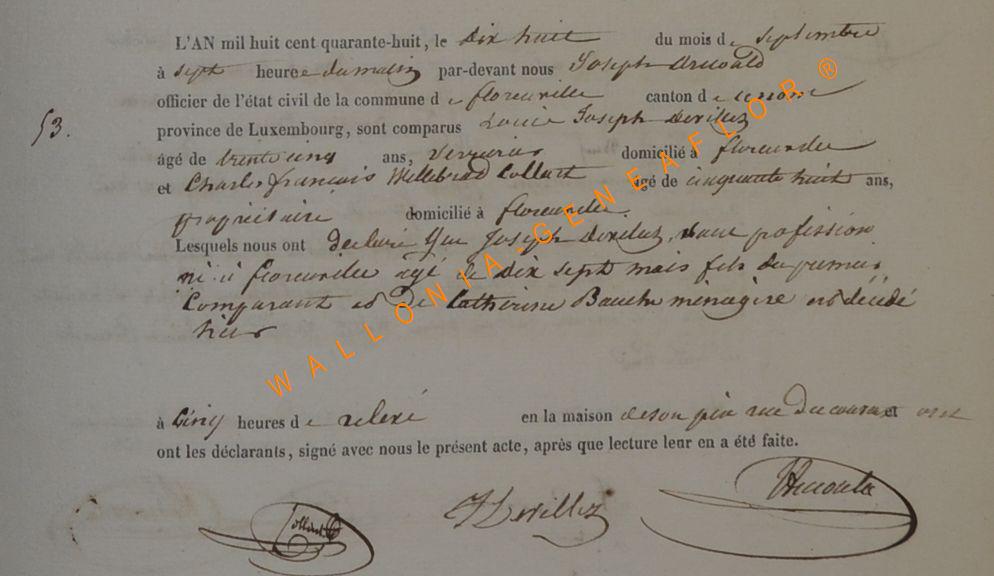 L'AN mil huit cent quarante-huit, le dix huit du mois de septembre
à sept heures du matin par-devant nous Joseph Arnould
officier de l'état civil de la commune de florenville canton de ce nom
53.
province de Luxembourg, sont comparus Louis Joseph Devillez
âgé de trente cinq ans, domicilié à florenville
et Charles françois Willebrod Collart âgé de cinquante huit ans,
propriétaire domicilié à florenville.
Lesquels nous ont declaré que Joseph Devillez, sans profession
né à florenville agé de dix sept mois fils du premier
Comparant et de Catherine menagère est décédé
hier
à cinq heures de relevé en la maison de son père rue du et ont
ont les déclarants, signé avec nous le présent acte, après que lecture leur en a été faite.
Collart JL Devillez Arnould
WALLONIA-GENEAFLOR ®